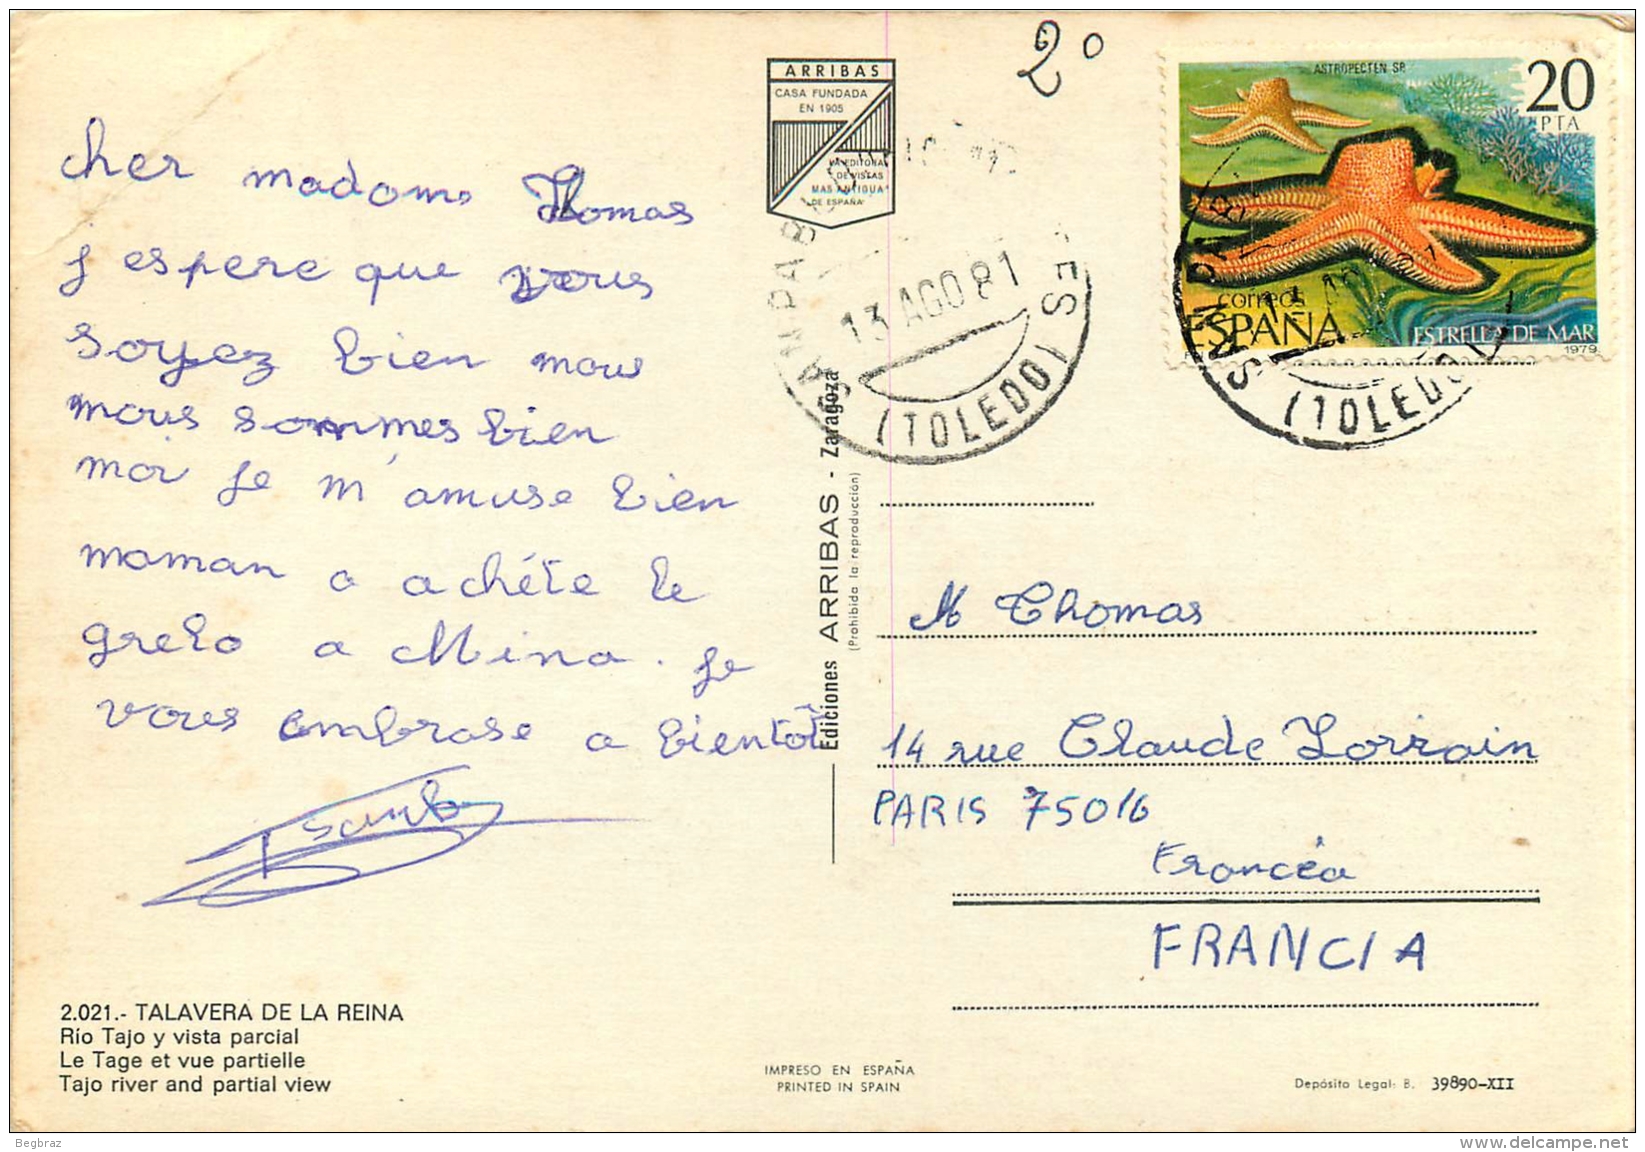 cher madame Thomas
j espere que vous
soyez bien nous
nous sommes bien
moi je m'amuse bien
maman a achéte le
grelo a Mina. je
vous embrase a bientôt
2.021.- TALAVERA DE LA REINA
Río Tajo y vista parcial
Le Tage et vue partielle
Tajo river and partial view
ARRIBAS
CASA FUNDADA
EN 1905
LA EDITORA
DE VISTAS
MAS ANTIGUA
DE ESPAÑA
Ediciones ARRIBAS - Zaragoza
(Prohibida la reproducción)
IMPRESO EN ESPAÑA
PRINTED IN SPAIN
2º
13 AGO 81
(TOLEDO)
ASTROPECTEN SP.
20
PTA
correos
ESPAÑA
ESTRELLA DE MAR
1979
(TOLEDO)
M Thomas
14 rue Claude Lorrain
PARIS 75016
Francéa
FRANCIA
Depósito Legal: B. 39890-XII
Begbraz
www.delcampe.net